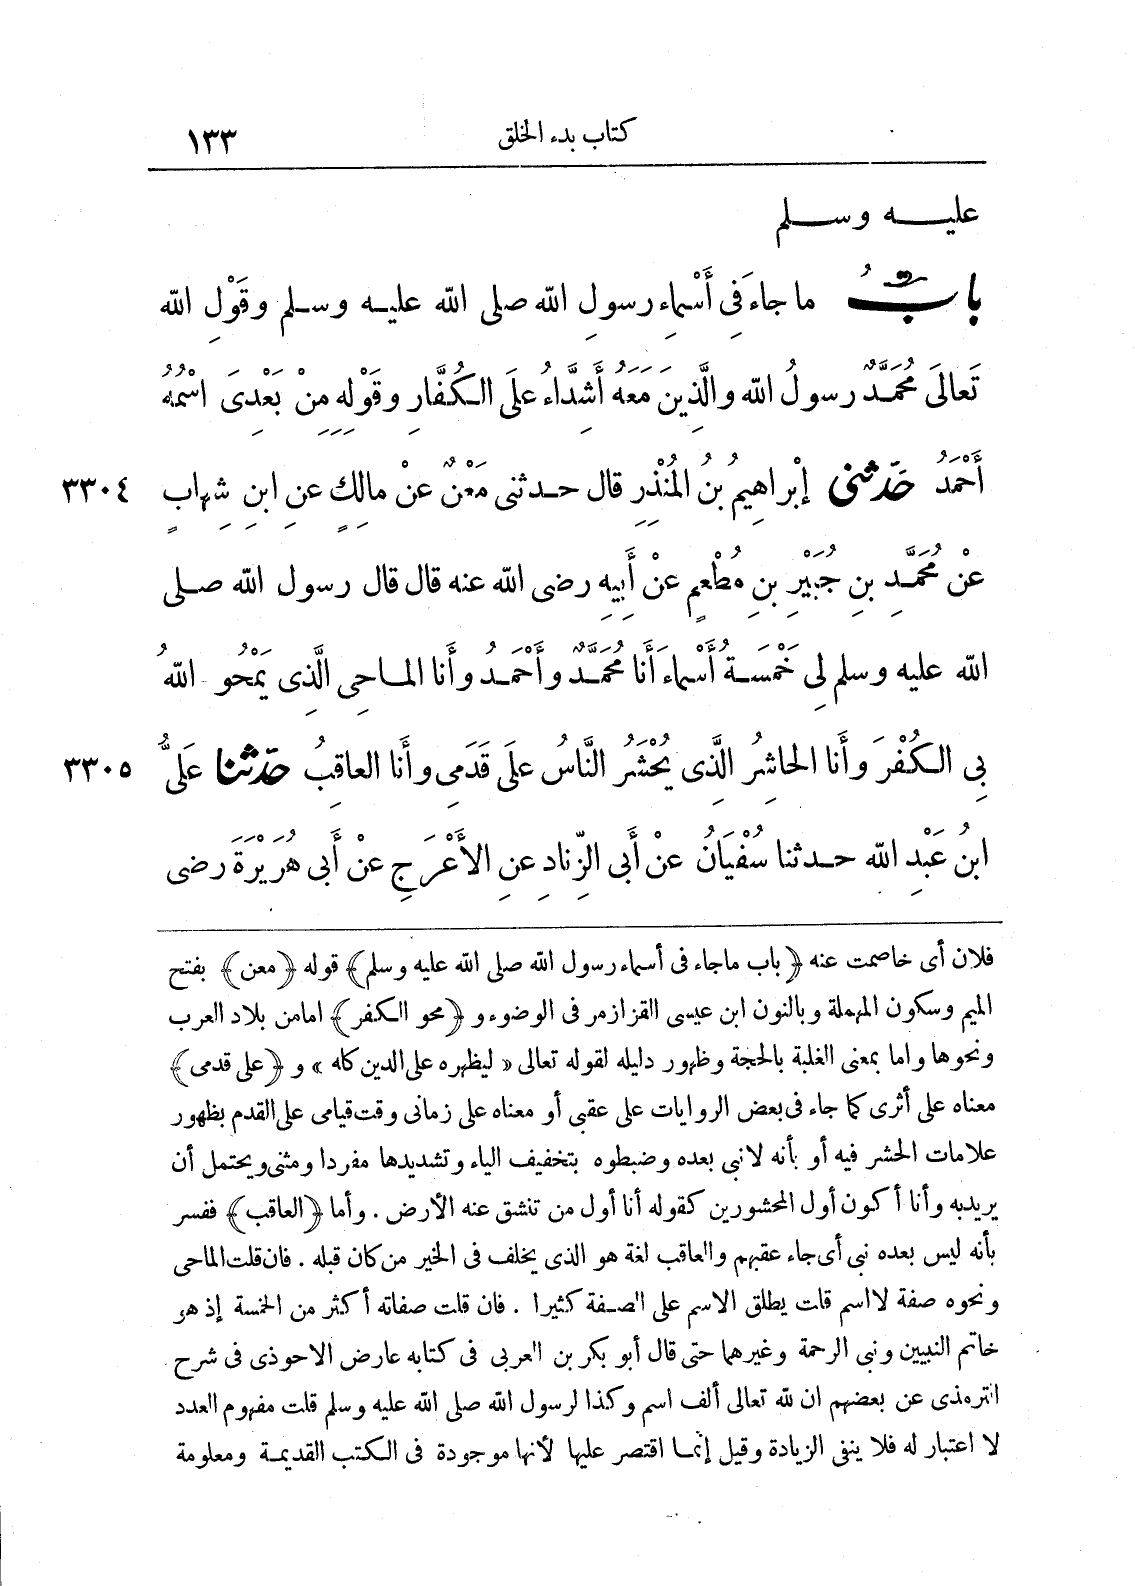 كتاب بدء الخلق ١٣٣
عليه وسلم
بابُ ما جاءَ فِى أَسْماءِ رسولِ الله صلى الله عليه وسلم وقَوْلِ الله
تَعالَى مُحَمَّدٌ رسولُ الله والَّذِينَ مَعَهُ أَشِدَّاءُ علَى الكُفَّارِ وقَوْلِهِ مِنْ بَعْدِىَ اسْمُهُ
أَحْمَدُ حَدّثنى إبْراهِيمُ بنُ المُنْذِرِ قال حدثنى مَعْنٌ عنْ مالِكٍ عنِ ابنِ شِهابٍ ٣٣٠٤
عنْ مُحَمَّدِ بنِ جُبَيْرِ بنِ مُطْعِمٍ عنْ أَبِيهِ رضى الله عنه قال قال رسول الله صلى
الله عليه وسلم لِى خَمْسَةُ أَسْماءَ أَنا مُحَمَّدٌ وأَحْمَدُ وأَنا الماحِى الَّذِى يَمْحُو اللهُ
بِى الكُفْرَ وأَنا الحاشِرُ الَّذِى يُحْشَرُ النَّاسُ علَى قَدَمِى وأَنا العاقِبُ حدّثنا عَلىُّ ٣٣٠٥
ابنُ عَبْدِ الله حدثنا سُفْيَانُ عنْ أَبى الزِّنادِ عنِ الأَعْرَجِ عنْ أَبى هُرَيْرَةَ رضى
فلان أى خاصمت عنه ﴿باب ماجاء فى أسماء رسول الله صلى الله عليه وسلم﴾ قوله ﴿معن﴾ بفتح
الميم وسكون المهملة وبالنون ابن عيسى القزاز مر فى الوضوء و ﴿محو الكفر﴾ اما من بلاد العرب
ونحوها واما بمعنى الغلبة بالحجة وظهور دليله لقوله تعالى «ليظهره على الدين كله» و ﴿على قدمى﴾
معناه على أثرى كما جاء فى بعض الروايات على عقبى أو معناه على زمانى وقت قيامى على القدم بظهور
علامات الحشر فيه أو بأنه لا نبى بعده وضبطوه بتخفيف الياء وتشديدها مفردا ومثنى ويحتمل أن
يريد به وأنا أكون أول المحشورين كقوله أنا أول من تنشق عنه الأرض . وأما ﴿العاقب﴾ ففسر
بأنه ليس بعده نبى أى جاء عقبهم والعاقب لغة هو الذى يخلف فى الخير من كان قبله . فان قلت الماحى
ونحوه صفة لا اسم قلت يطلق الاسم على الصفة كثيرا . فان قلت صفاته أكثر من الخمسة إذ هو
خاتم النبيين ونبى الرحمة وغيرهما حتى قال أبو بكر بن العربى فى كتابه عارض الاحوذى فى شرح
الترمذى عن بعضهم ان لله تعالى ألف اسم وكذا لرسول الله صلى الله عليه وسلم قلت مفهوم العدد
لا اعتبار له فلا ينفى الزيادة وقيل إنما اقتصر عليها لأنها موجودة فى الكتب القديمة ومعلومة